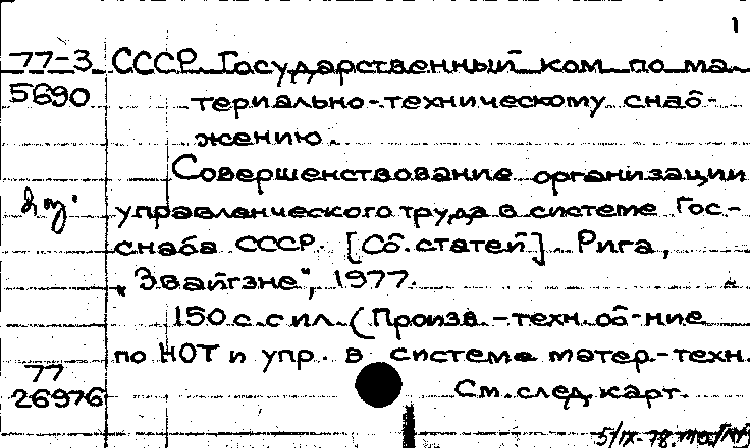 1
77-3 СССР. Государственный ком. по ма-
5690 териально-техническому снаб-
жению.
Совершенствование организации
управленческого труда в системе Гос-
снаба СССР. [Сб. статей]. Рига,
„Звайгзне", 1977.
150 с. с ил. (Произв.-техн. об-ние
по НОТ и упр. в системе матер.-техн.
77 См. след. карт.
26976
5/IX-78.